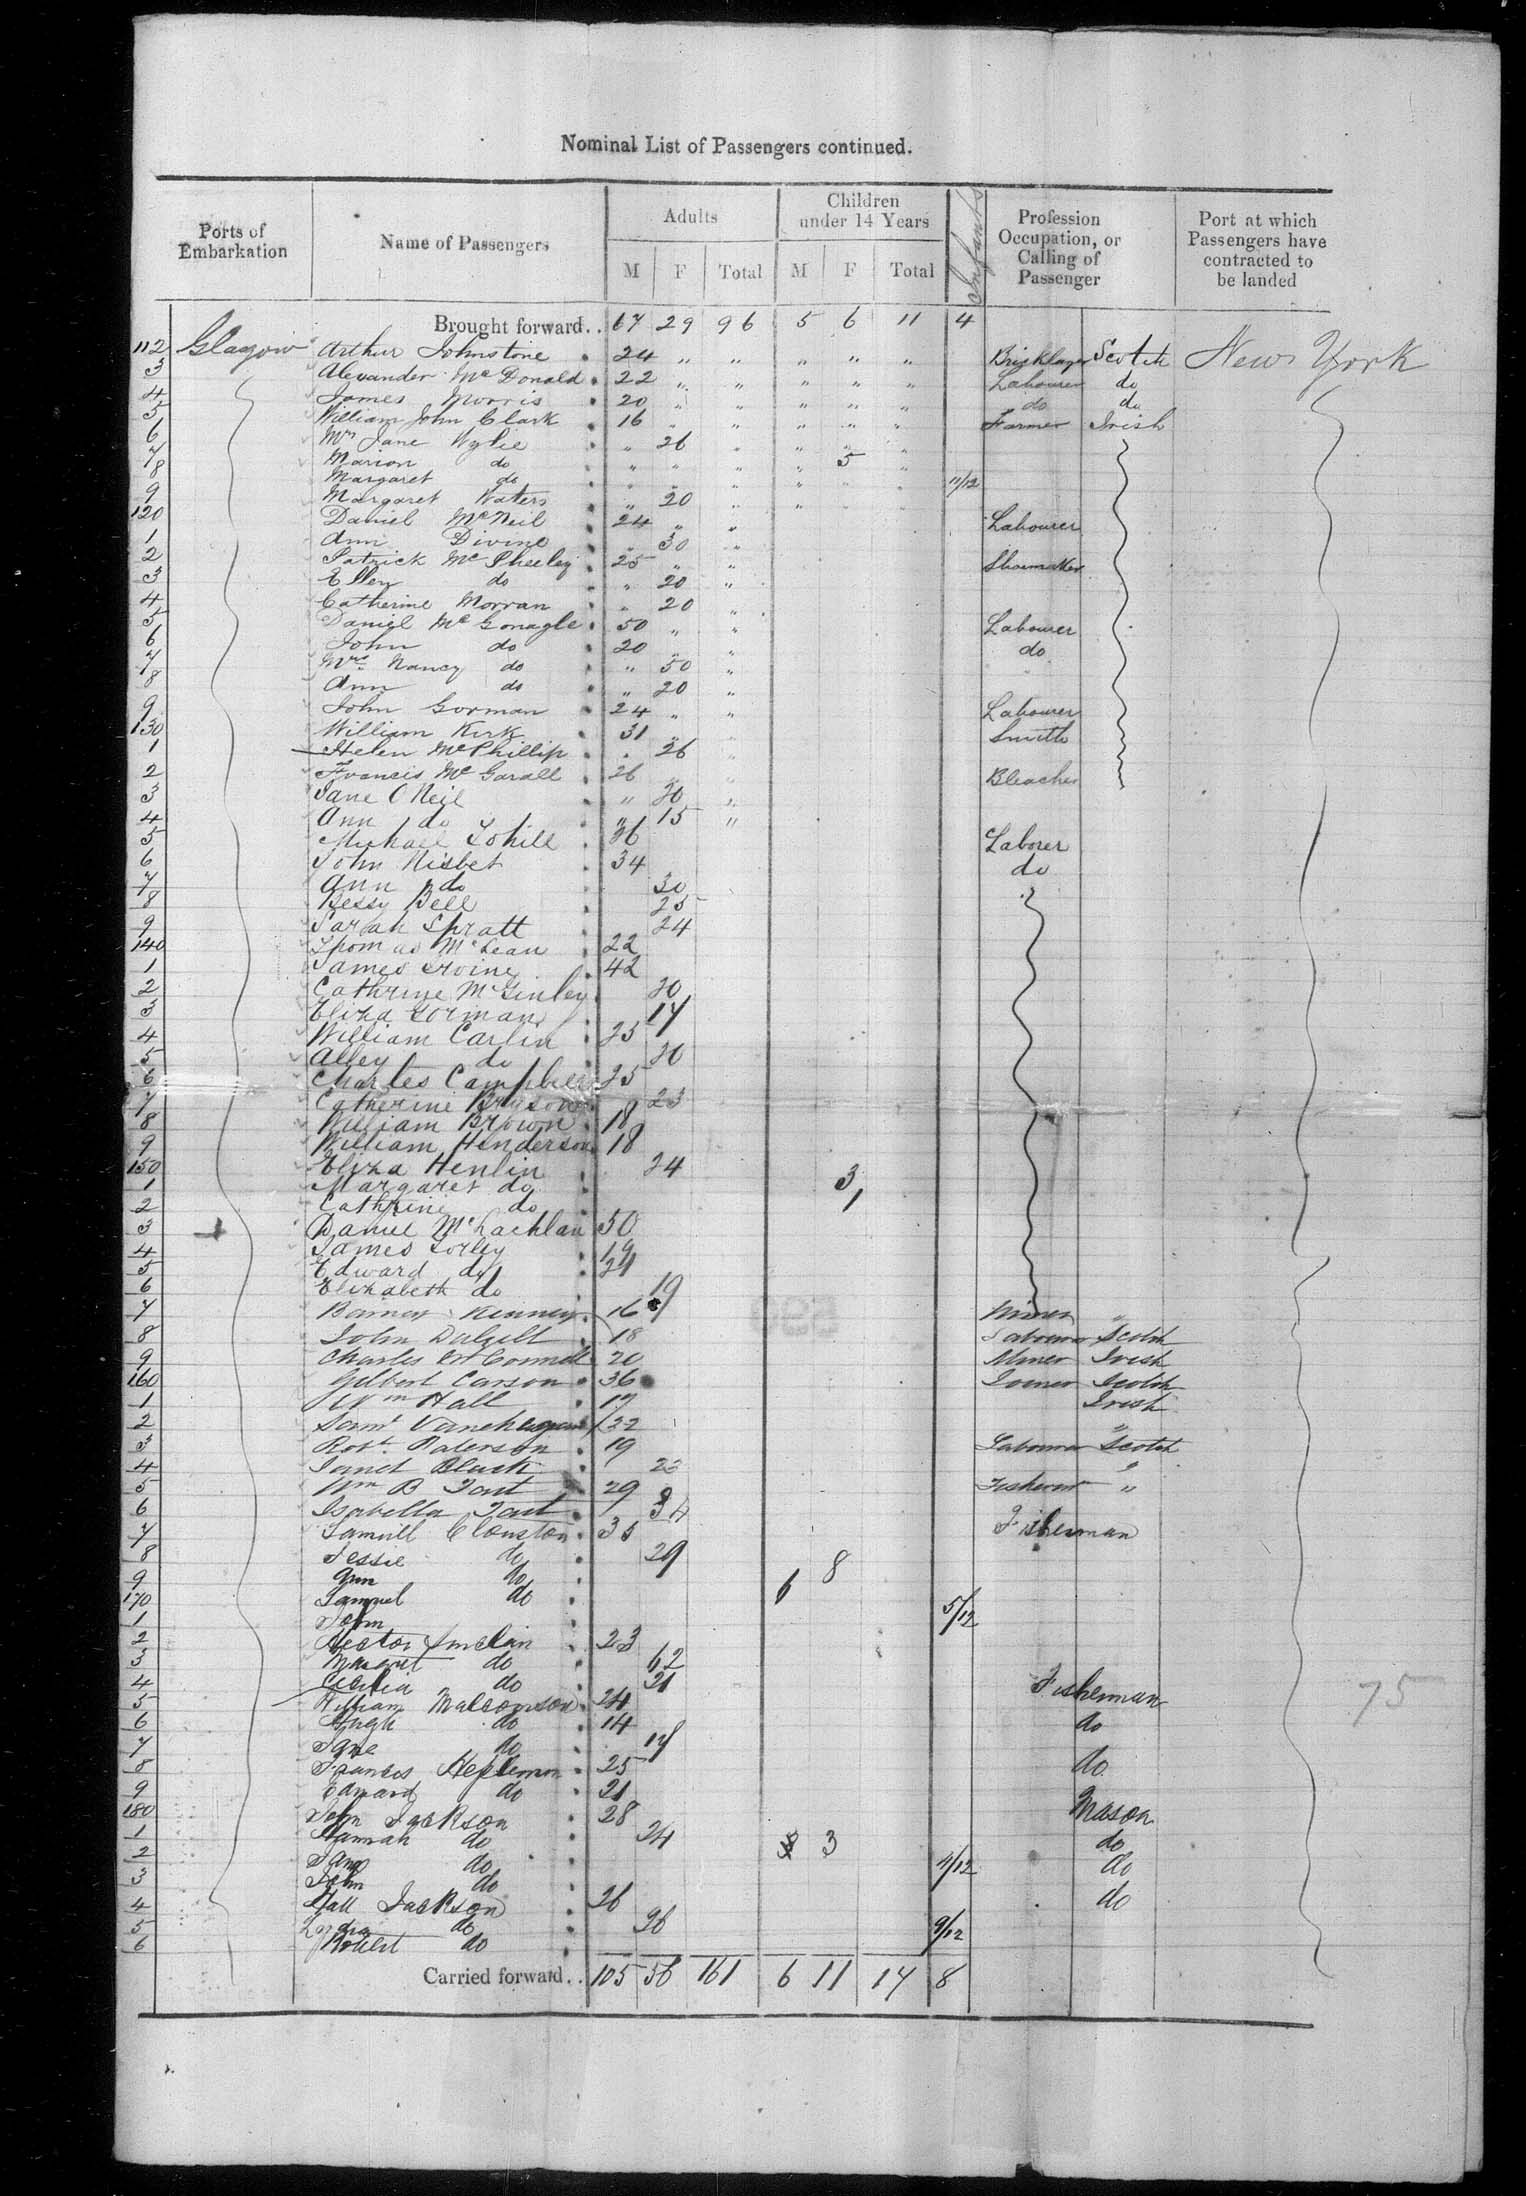 Nominal List of Passengers continued.
Ports of Embarkation Name of Passengers Adults Children under 14 Years Infants Profession Occupation, or Calling of Passenger Port at which Passengers have contracted to be landed
M F Total M F Total
Brought forward.. 67 29 96 5 6 11 4
112 Glasgow Arthur Johnstone 24 " " " " " Bricklayer Scotch New York
3 Alexander McDonald 22 " " " " " Labourer do
4 James Morris 20 " " " " " do do
5 William John Clark 16 " " " " " Farmer Irish
6 Mrs Jane Wylie " 26 " " " "
7 Marion do " " " " 5 "
8 Margaret do " " " " " " 11/12
9 Margaret Waters " 20 " "
120 Daniel McNeil 24 " " Labourer
1 Ann Divine " 30 "
2 Patrick McPheeley 25 " " Shoemaker
3 Ellen do " 20 "
4 Catherine Morran " 20 "
5 Daniel McGonagle 50 " " Labourer
6 John do 20 " " do
7 Mrs Nancy do " 50 "
8 Ann do " 20 "
9 John Gorman 24 " " Labourer
130 William Kirk 31 " " Smith
1 Helen McPhillip " 26 "
2 Francis McGarall 26 " " Bleacher
3 Jane O Neil " 20 "
4 Ann do " 15 "
5 Michael Tohill 26 Laborer
6 John Nisbet 34 do
7 Ann do 30
8 Bessy Bell 25
9 Sarah Spratt 24
140 Thomas McLean 22
1 James Irvine 42
2 Cathrine McGinley 20
3 Eliza Gorman 17
4 William Carlin 25
5 Alley do 20
6 Charles Campbell 25
7 Catherine Bryson 23
8 William Brown 18
9 William Henderson 18
150 Eliza Henlin 24
1 Margaret do 3
2 Cathrine do 1
3 Daniel McLachlan 50
4 James Torley 19
5 Edward do 21
6 Elizabeth do 19
7 Barney Kenney 16 Miner "
8 John Dalzell 18 Labourer Scotch
9 Charles McConnell 20 Miner Irish
160 Gilbert Carson 36 Joiner Scotch
1 Wm Hall 17 Irish
2 Saml 22 "
3 Robt. Paterson 19 Labourer Scotch
4 Janet Black 23 "
5 Wm B Tait 29 "
6 Isabella Tait 34
7 Samuel Clouston 35 Fisherman
8 Jessie do 29
9 Ann do 8
170 Samuel do 6
1 John 5/12
2 Hector Sinclair 23
3 Margret do 62
4 Cecilia do 21
5 William Malcomson 24 Fisherman
6 Hugh do 14 do
7 Jane do 17
8 Francis 25 do
9 Edward do 21
180 John Jackson 28 Mason
1 Hannah do 24 do
2 Jane do 3 do
3 John do 4/12
4 Hall Jackson 26 do
5 do 26
6 Robert do 9/12
Carried forward.. 105 56 161 6 11 17 8
75